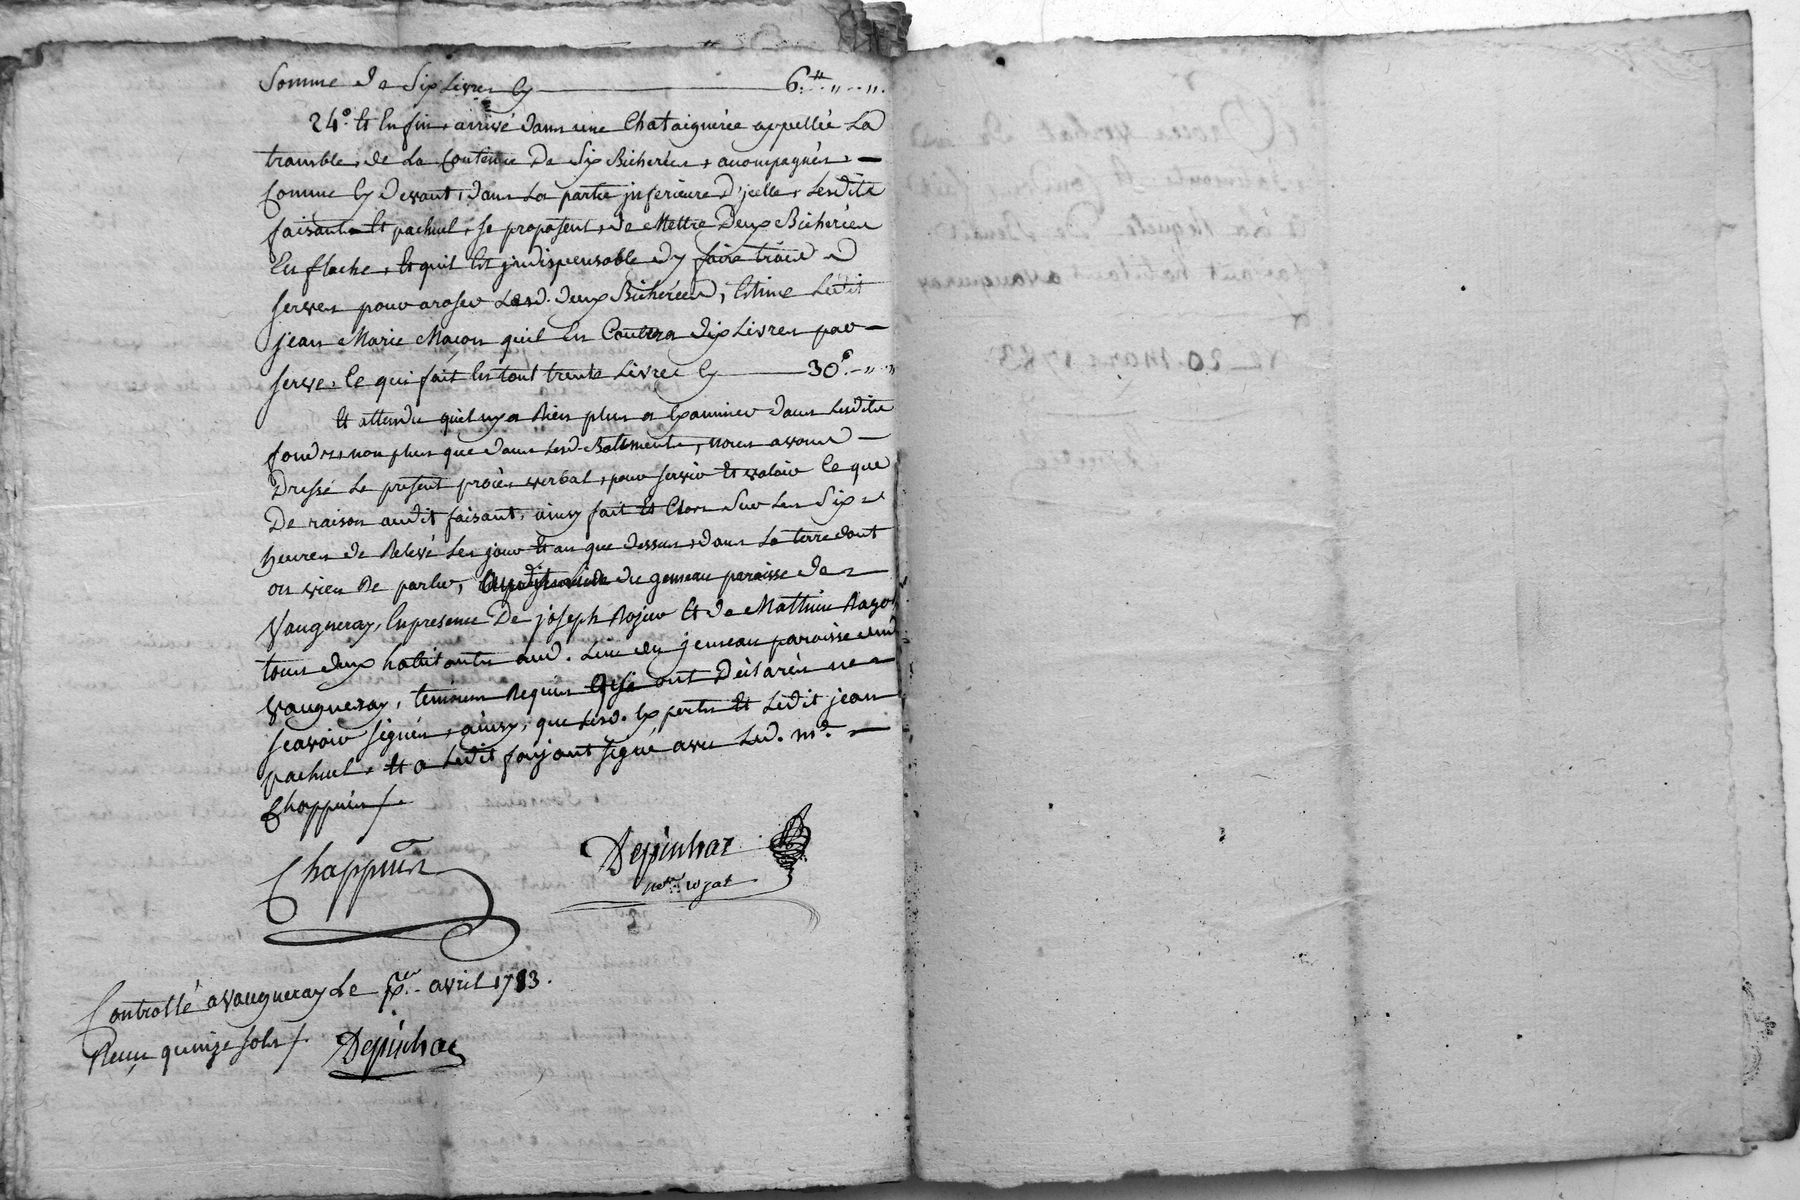 Somme de Six Livres Cy 6.ᵗᵗ „ .. „.
24.° Et Enfin, arrivé dans une Chataignerée appellée La
tramble, de La Contenue De Six Bicherées, acompagnés,
Comme Cy Devant, dans La partie inferieure d'jcelle, Lesdits
faisant Et pachul, se proposent, de Mettre Deux Bicherées
En flache, Et quil Est jndispensable d'y faire trois
serves pour aroser Lesd. deux Bicherées, Estime Ledit
jean Marie Maçon quil En Coutera dix Livres par
serve, Ce qui fait En tout trente Livres Cy 30.ᵗᵗ „ „
Et attendu quil ny a Rien plus a Examiner dans Lesdits
fonds, non plus que dans Lesd. Batiments, nous avons
Dressé Le present procès verbal, pour servir Et valoir Ce que
De raison audit faisant, ainsy fait Et Clos Sur Les Six
heures de Relevé Les jour Et an que dessus, dans La terre dont
on vien De parler, du gemeau paroisse de
Vaugneray, En presence De joseph Rojeu Et de Mathieu
tous deux habitants aud. Lieu du jemeau paroisse dud.
Vaugneray, temoins Requis Qui ont Déclarés ne
scavoir signer, ainsy, que Lesd. Experts Et Ledit jean
pachul, Et a Ledit faisant signé avec Led. mᵉ.
Chappuis /.
Chappuis
Depinhac
noʳᵉ royal
Controllé a Vaugneray Le pᵉʳ. avril 1783.
Reçu quinze sols /. Depinhac
procès verbal de
a La Requete De Benoit
faisant habitant a Vaugneray
20 Mars 1783